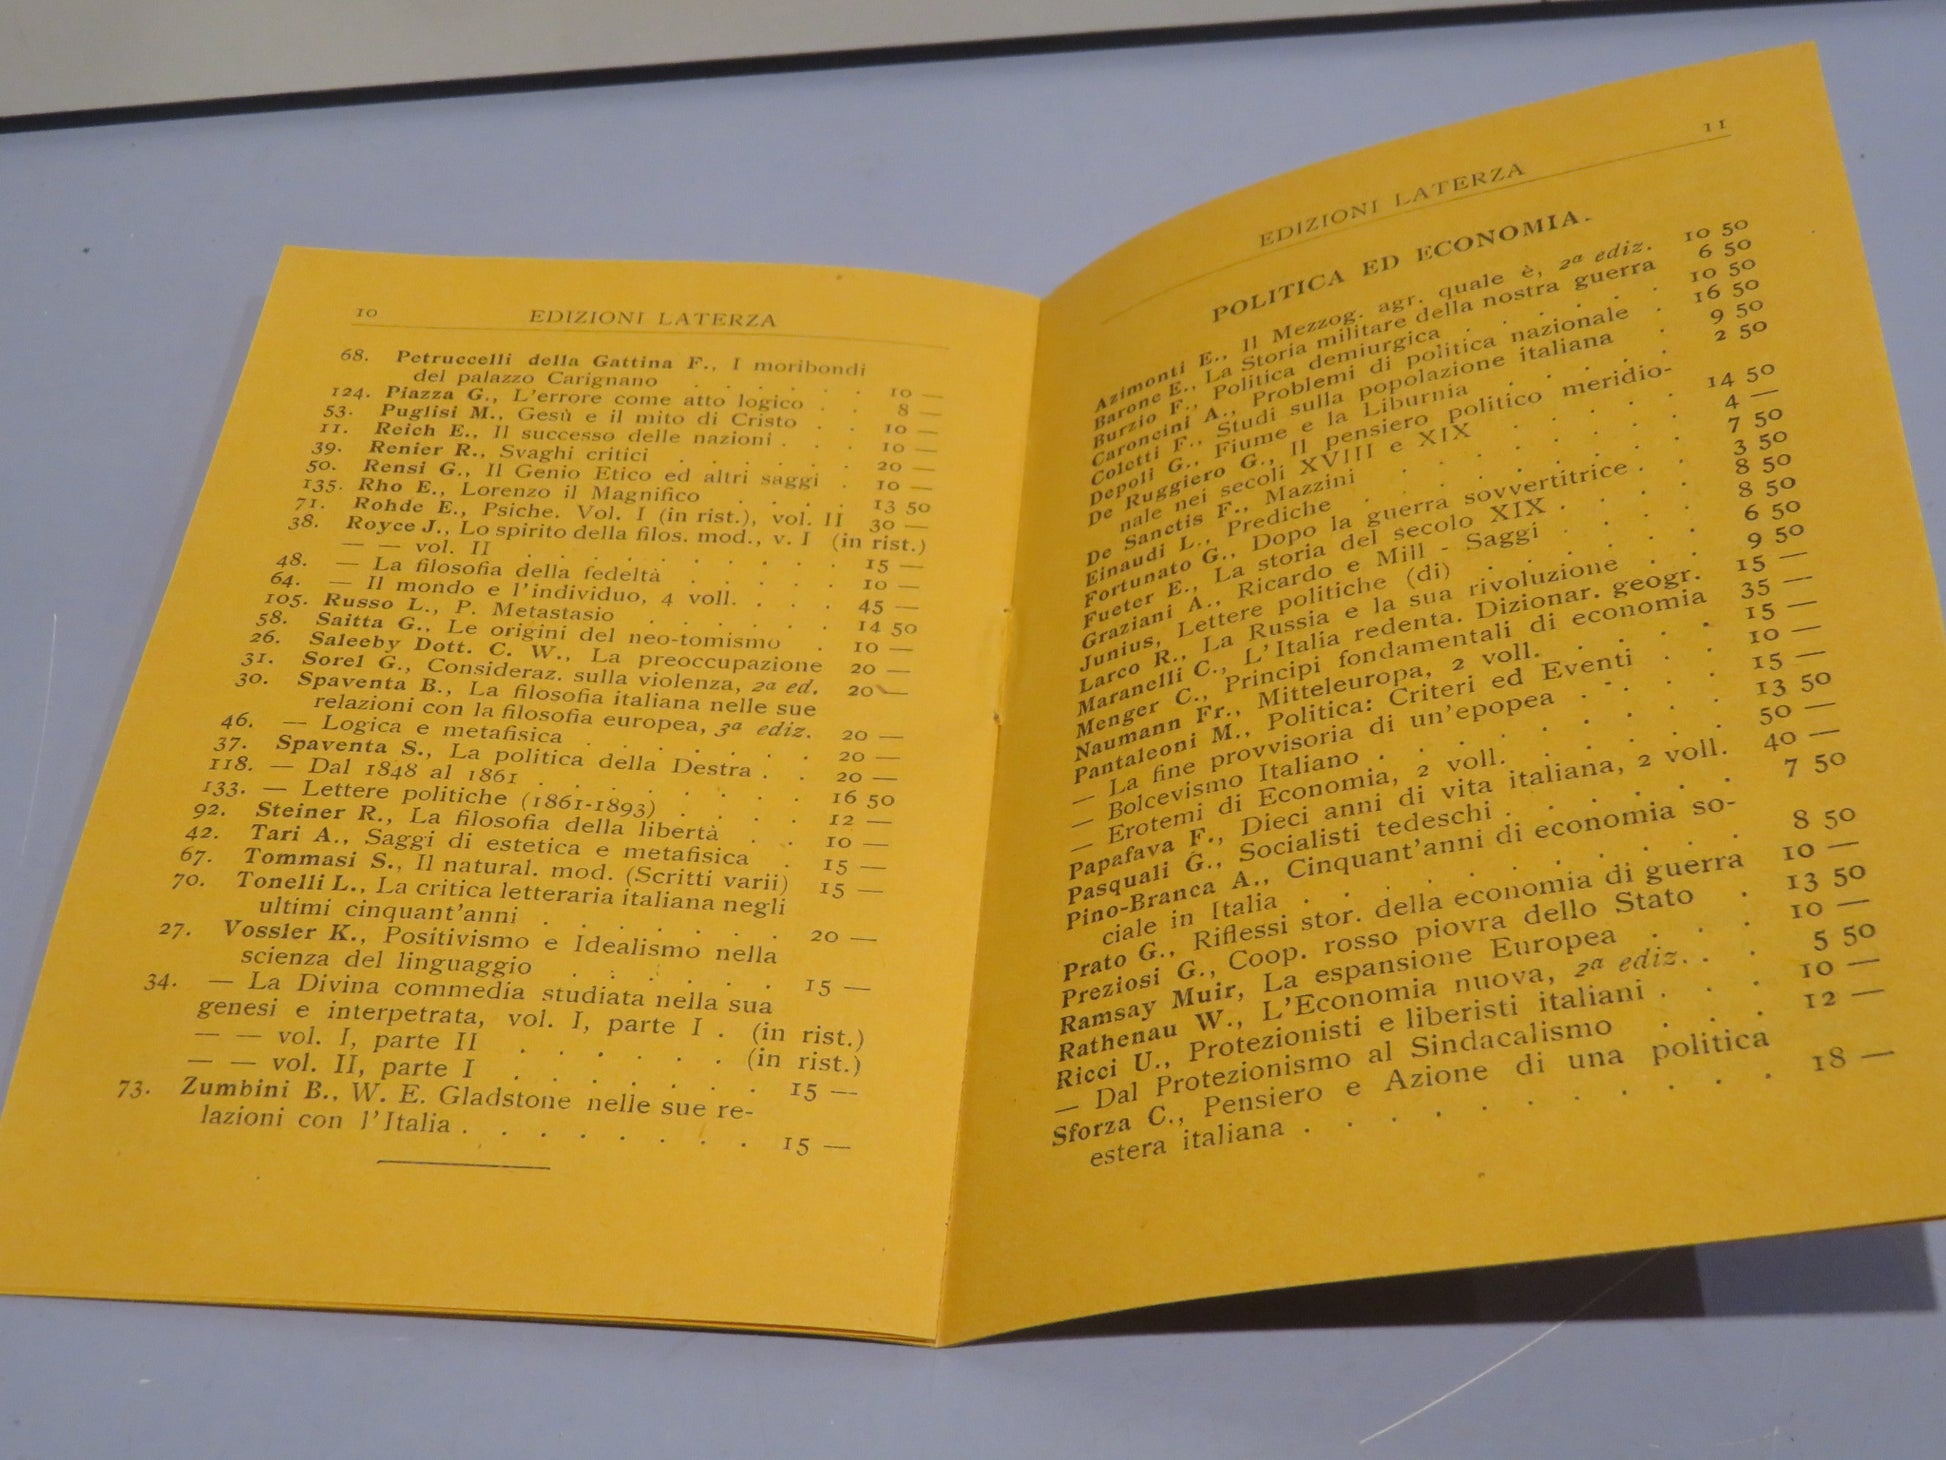 10
EDIZIONI LATERZA
68. Petruccelli della Gattina F., I moribondi
del palazzo Carignano . . . . . 10 —
124. Piazza G., L'errore come atto logico . . 8 —
53. Puglisi M., Gesù e il mito di Cristo . . 10 —
11. Reich E., Il successo delle nazioni . . . 10 —
39. Renier R., Svaghi critici . . . . . 20 —
50. Rensi G., Il Genio Etico ed altri saggi . 10 —
135. Rho E., Lorenzo il Magnifico . . . . 13 50
71. Rohde E., Psiche. Vol. I (in rist.), vol. II 30 —
38. Royce J., Lo spirito della filos. mod., v. I (in rist.)
— — vol. II . . . . . . . . 15 —
48. — La filosofia della fedeltà . . . . . 10 —
64. — Il mondo e l'individuo, 4 voll. . . . 45 —
105. Russo L., P. Metastasio . . . . . . 14 50
58. Saitta G., Le origini del neo-tomismo . 10 —
26. Saleeby Dott. C. W., La preoccupazione 20 —
31. Sorel G., Consideraz. sulla violenza, 2ª ed. 20 —
30. Spaventa B., La filosofia italiana nelle sue
relazioni con la filosofia europea, 3ª ediz. 20 —
46. — Logica e metafisica . . . . . . 20 —
37. Spaventa S., La politica della Destra . . 20 —
118. — Dal 1848 al 1861 . . . . . . . 16 50
133. — Lettere politiche (1861-1893) . . . . 12 —
92. Steiner R., La filosofia della libertà . . 10 —
42. Tari A., Saggi di estetica e metafisica . 15 —
67. Tommasi S., Il natural. mod. (Scritti varii) 15 —
70. Tonelli L., La critica letteraria italiana negli
ultimi cinquant'anni . . . . . . 20 —
27. Vossler K., Positivismo e Idealismo nella
scienza del linguaggio . . . . . . 15 —
34. — La Divina commedia studiata nella sua
genesi e interpetrata, vol. I, parte I . (in rist.)
— — vol. I, parte II . . . . . . (in rist.)
— — vol. II, parte I . . . . . . . 15 —
73. Zumbini B., W. E. Gladstone nelle sue re-
lazioni con l'Italia . . . . . . . . 15 —
11
EDIZIONI LATERZA
POLITICA ED ECONOMIA.
Azimonti E., Il Mezzog. agr. quale è, 2ª ediz. 10 50
Barone E., La Storia militare della nostra guerra 6 50
Burzio F., Politica demiurgica . . . . . . 10 50
Caroncini A., Problemi di politica nazionale . 16 50
Coletti F., Studi sulla popolazione italiana . 9 50
Depoli G., Fiume e la Liburnia . . . . . 2 50
De Ruggiero G., Il pensiero politico meridio-
nale nei secoli XVIII e XIX . . . . . 14 50
De Sanctis F., Mazzini . . . . . . . 4 —
Einaudi L., Prediche . . . . . . . . 7 50
Fortunato G., Dopo la guerra sovvertitrice . . 3 50
Fueter E., La storia del secolo XIX . . . . 8 50
Graziani A., Ricardo e Mill - Saggi . . . . 8 50
Junius, Lettere politiche (di) . . . . . . 6 50
Larco R., La Russia e la sua rivoluzione . . 9 50
Maranelli C., L'Italia redenta. Dizionar. geogr. 15 —
Menger C., Principi fondamentali di economia 35 —
Naumann Fr., Mitteleuropa, 2 voll. . . . . 15 —
Pantaleoni M., Politica: Criteri ed Eventi . . 10 —
— La fine provvisoria di un'epopea . . . . 15 —
— Bolcevismo Italiano . . . . . . . . 13 50
— Erotemi di Economia, 2 voll. . . . . . 50 —
Papafava F., Dieci anni di vita italiana, 2 voll. 40 —
Pasquali G., Socialisti tedeschi . . . . . . 7 50
Pino-Branca A., Cinquant'anni di economia so-
ciale in Italia . . . . . . . . . . 8 50
Prato G., Riflessi stor. della economia di guerra 10 —
Preziosi G., Coop. rosso piovra dello Stato . 13 50
Ramsay Muir, La espansione Europea . . . 10 —
Rathenau W., L'Economia nuova, 2ª ediz. . . 5 50
Ricci U., Protezionisti e liberisti italiani . . . 10 —
— Dal Protezionismo al Sindacalismo . . . 12 —
Sforza C., Pensiero e Azione di una politica
estera italiana . . . . . . . . . . 18 —